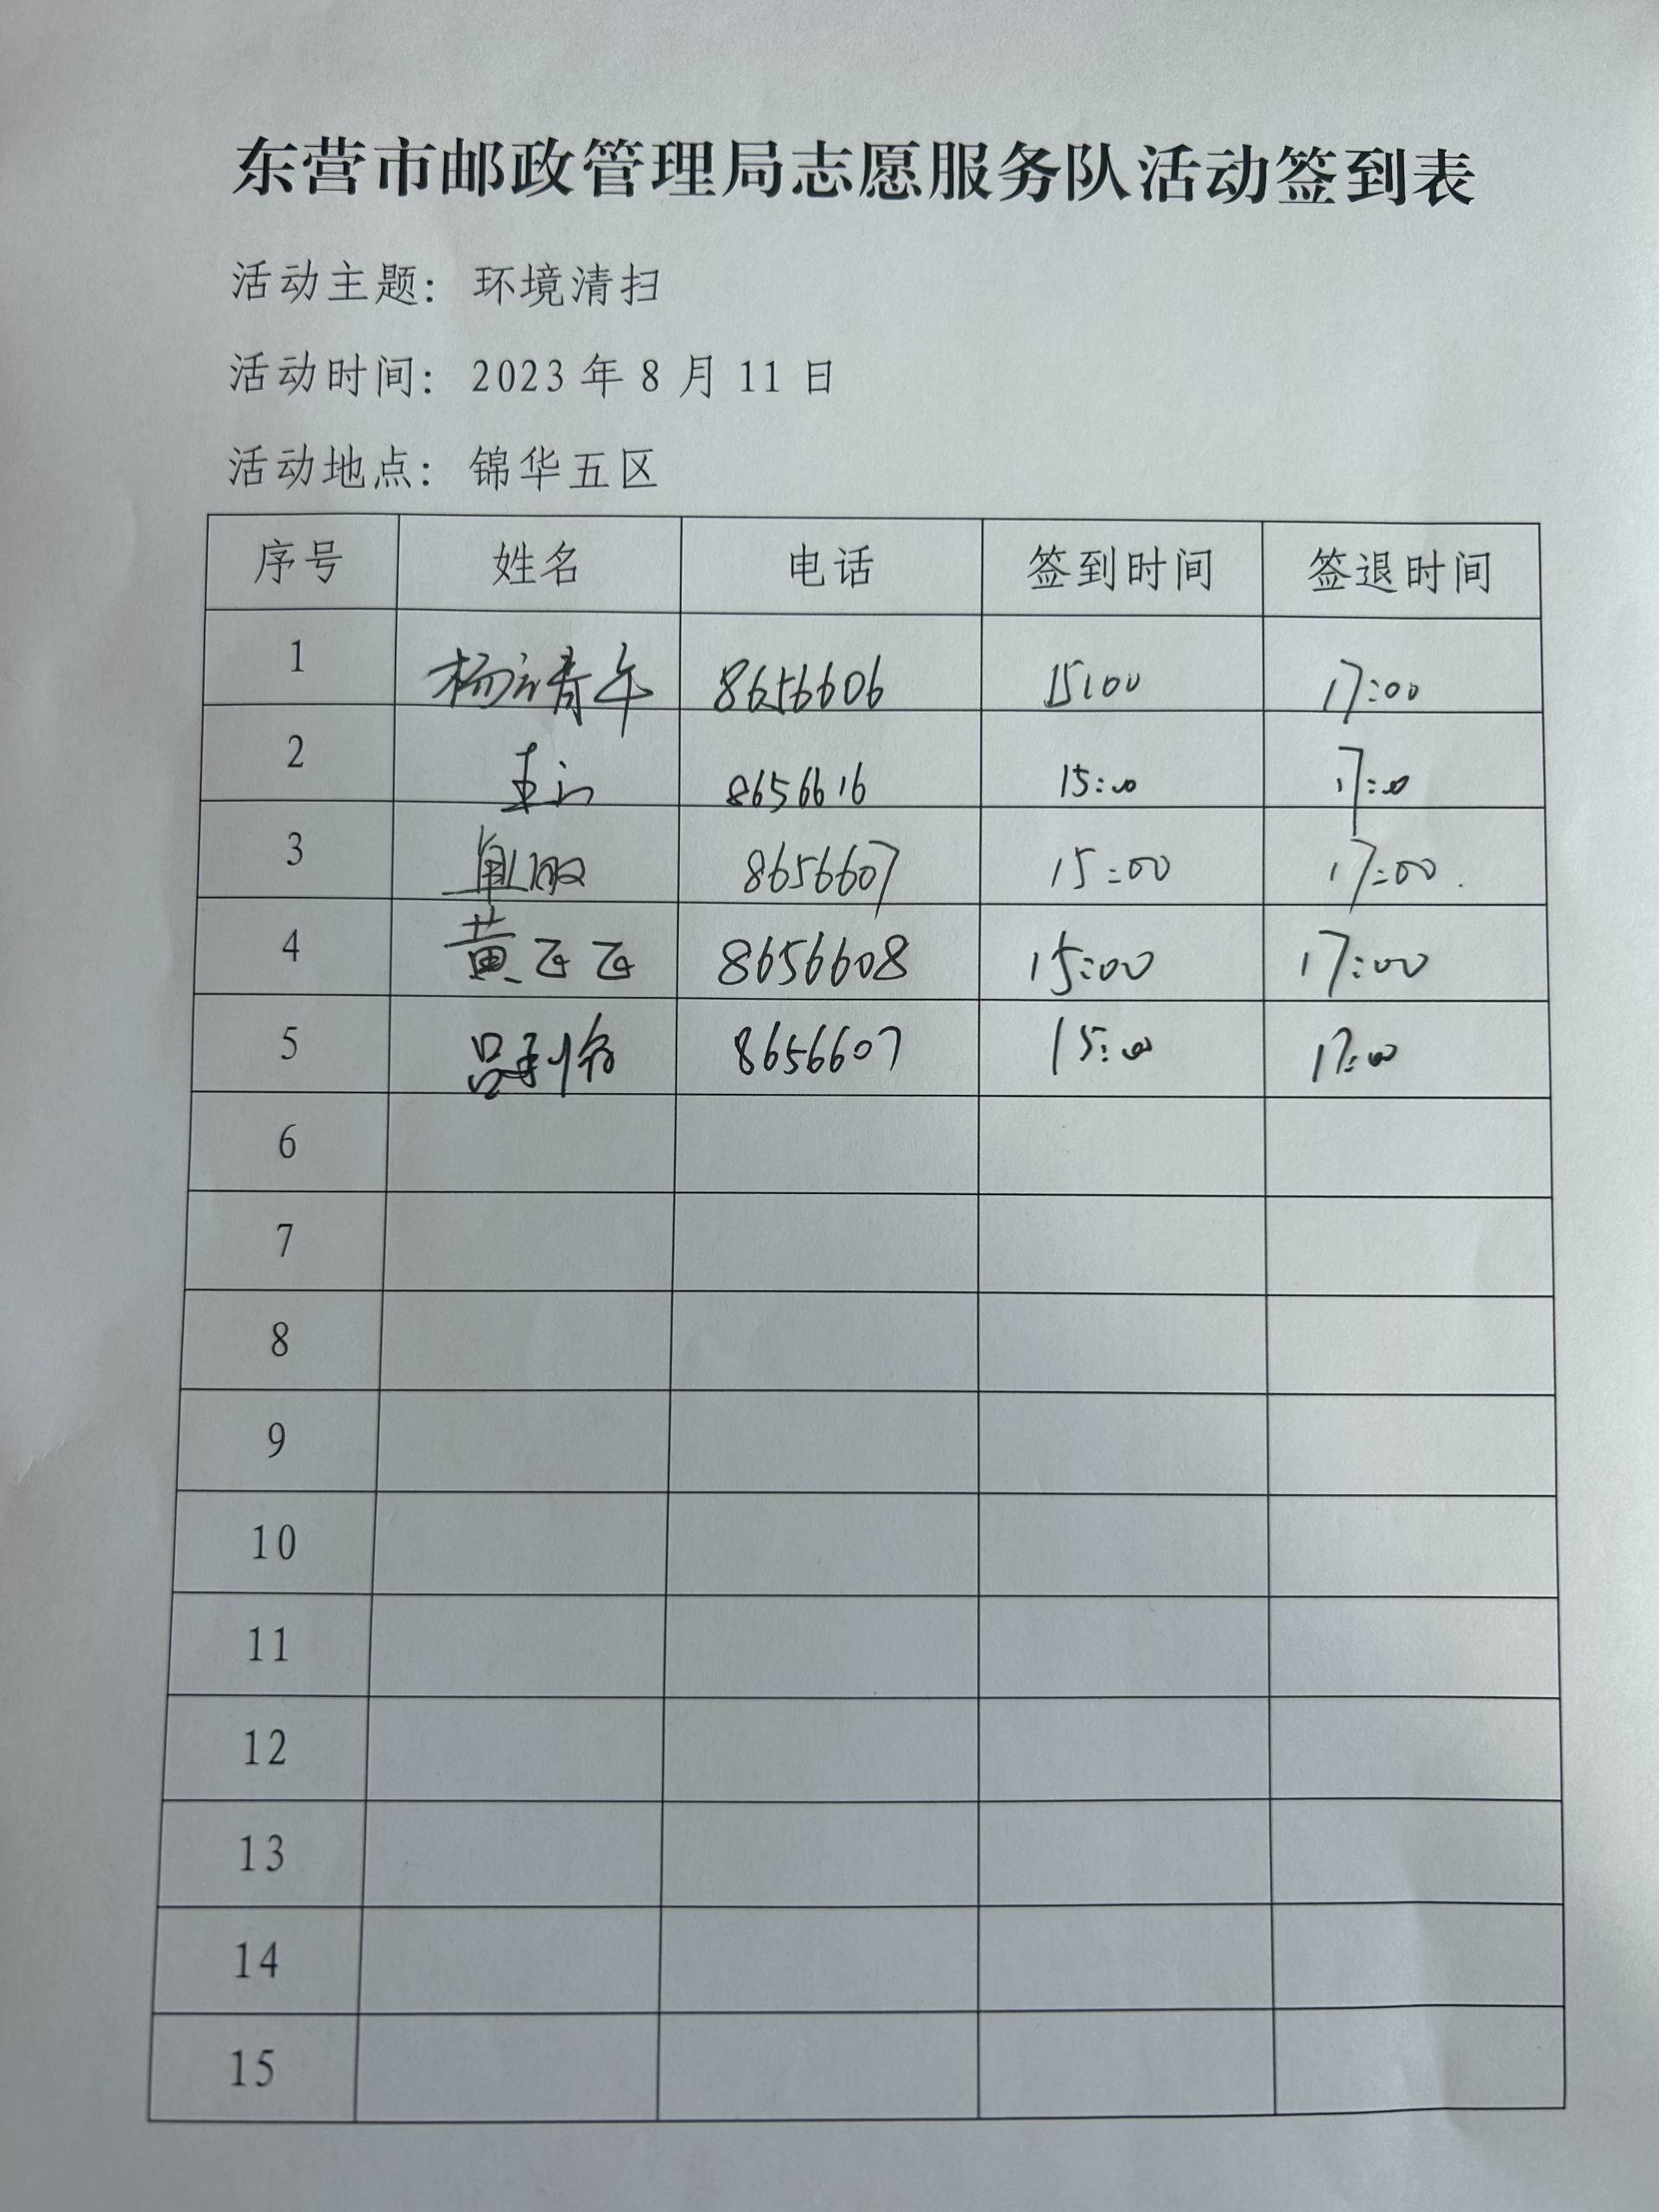 东营市邮政管理局志愿服务队活动签到表
活动主题：环境清扫
活动时间：2023年8月11日
活动地点：锦华五区
序号 姓名 电话 签到时间 签退时间
1 8656606 15:00 17:00
2 8656616 15:00 17:00
3 8656607 15:00 17:00
4 黄飞飞 8656608 15:00 17:00
5 8656607 15:00 17:00
6
7
8
9
10
11
12
13
14
15